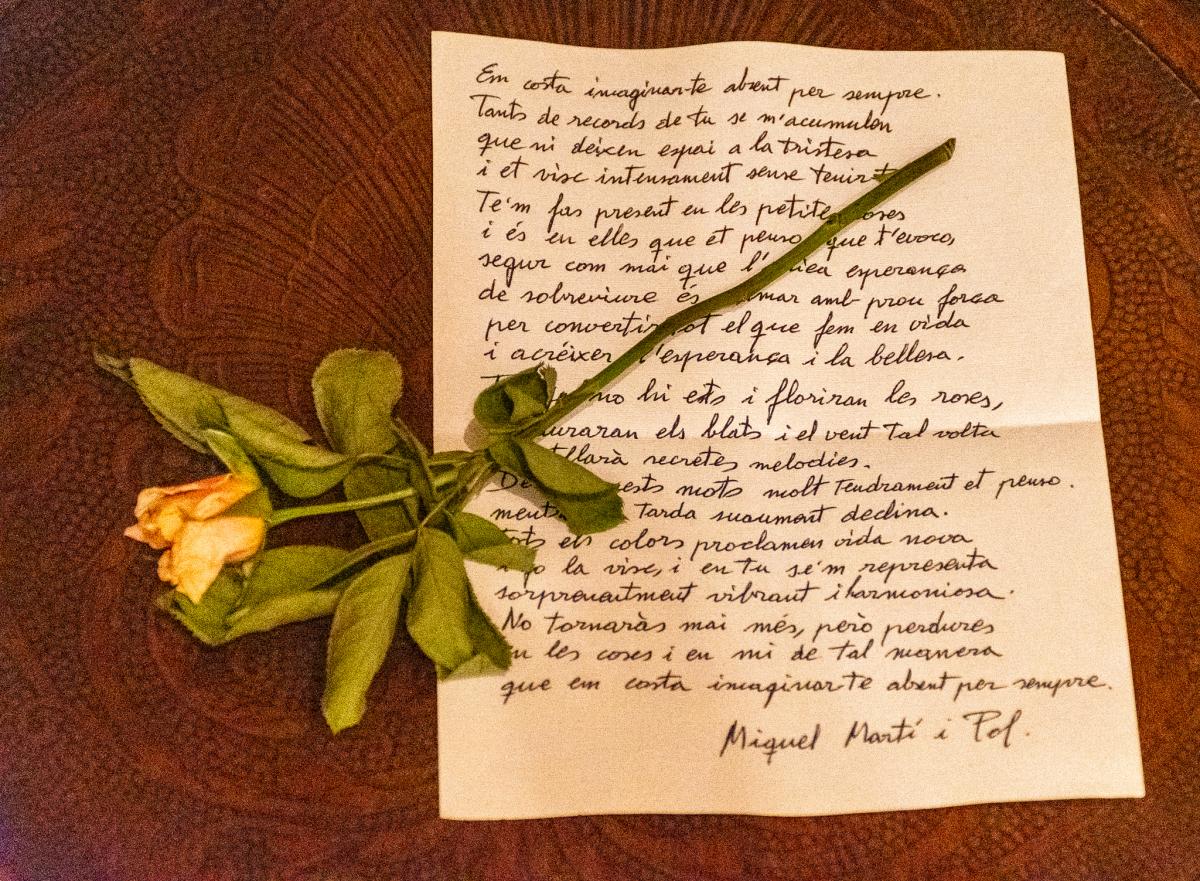 Em costa imaginar-te absent per sempre.
Tants de records de tu se m'acumulen
que ni deixen espai a la tristesa
i et visc intensament sense tenir-t
Te'm fas present en les petites oses
i és en elles que et penso que t'evoco,
segur com mai que l' esperança
de sobreviure és amb prou força
per convertir tot el que fem en vida
i acréixer l'esperança i la bellesa.
no hi ets i floriran les roses,
els blats i el vent tal volta
secretes melodies.
mots molt tendrament et penso.
tarda suaument declina.
Tots els colors proclamen vida nova
i jo la visc, i en tu se'm representa
sorprenentment vibrant i harmoniosa.
No tornaràs mai més, però perdures
en les coses i en mi de tal manera
que em costa imaginar-te absent per sempre.
Miquel Martí i Pol.